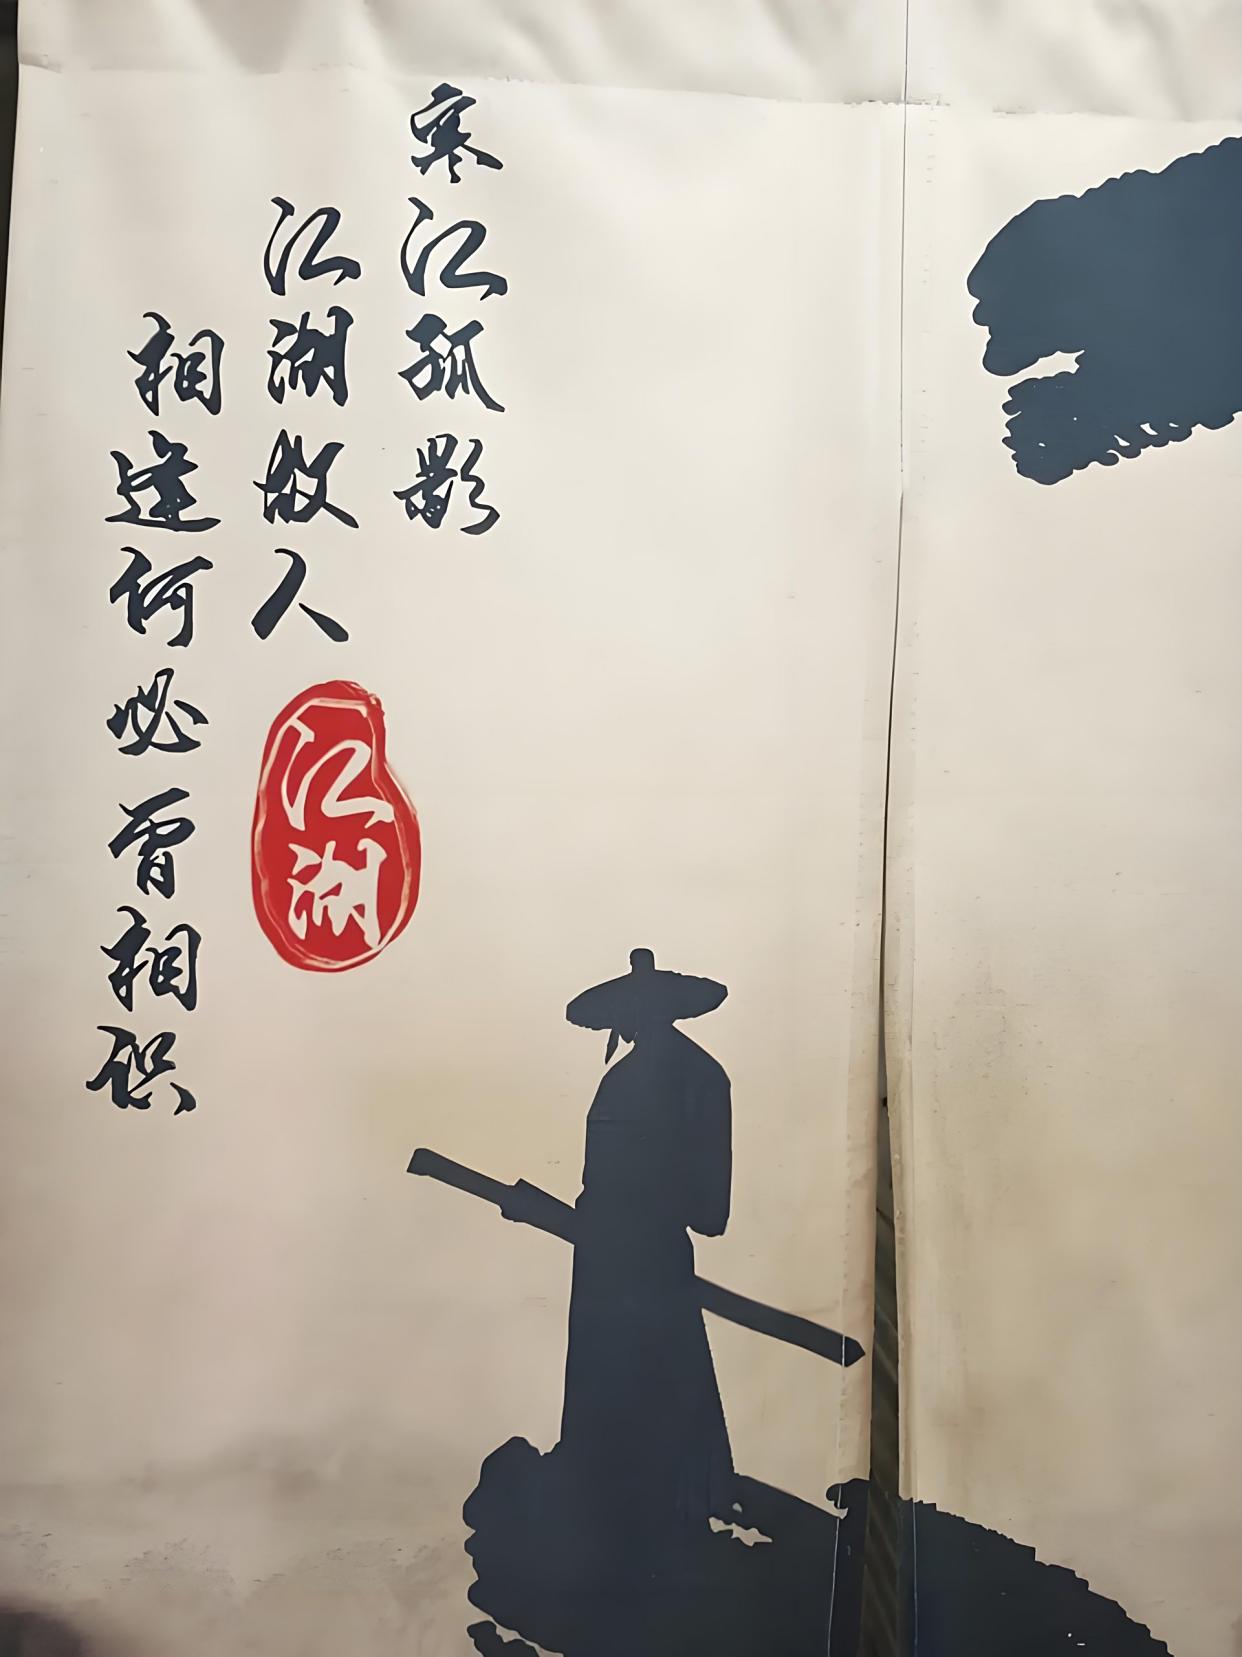 寒江孤影
江湖故人
相逢何必曾相识
江湖